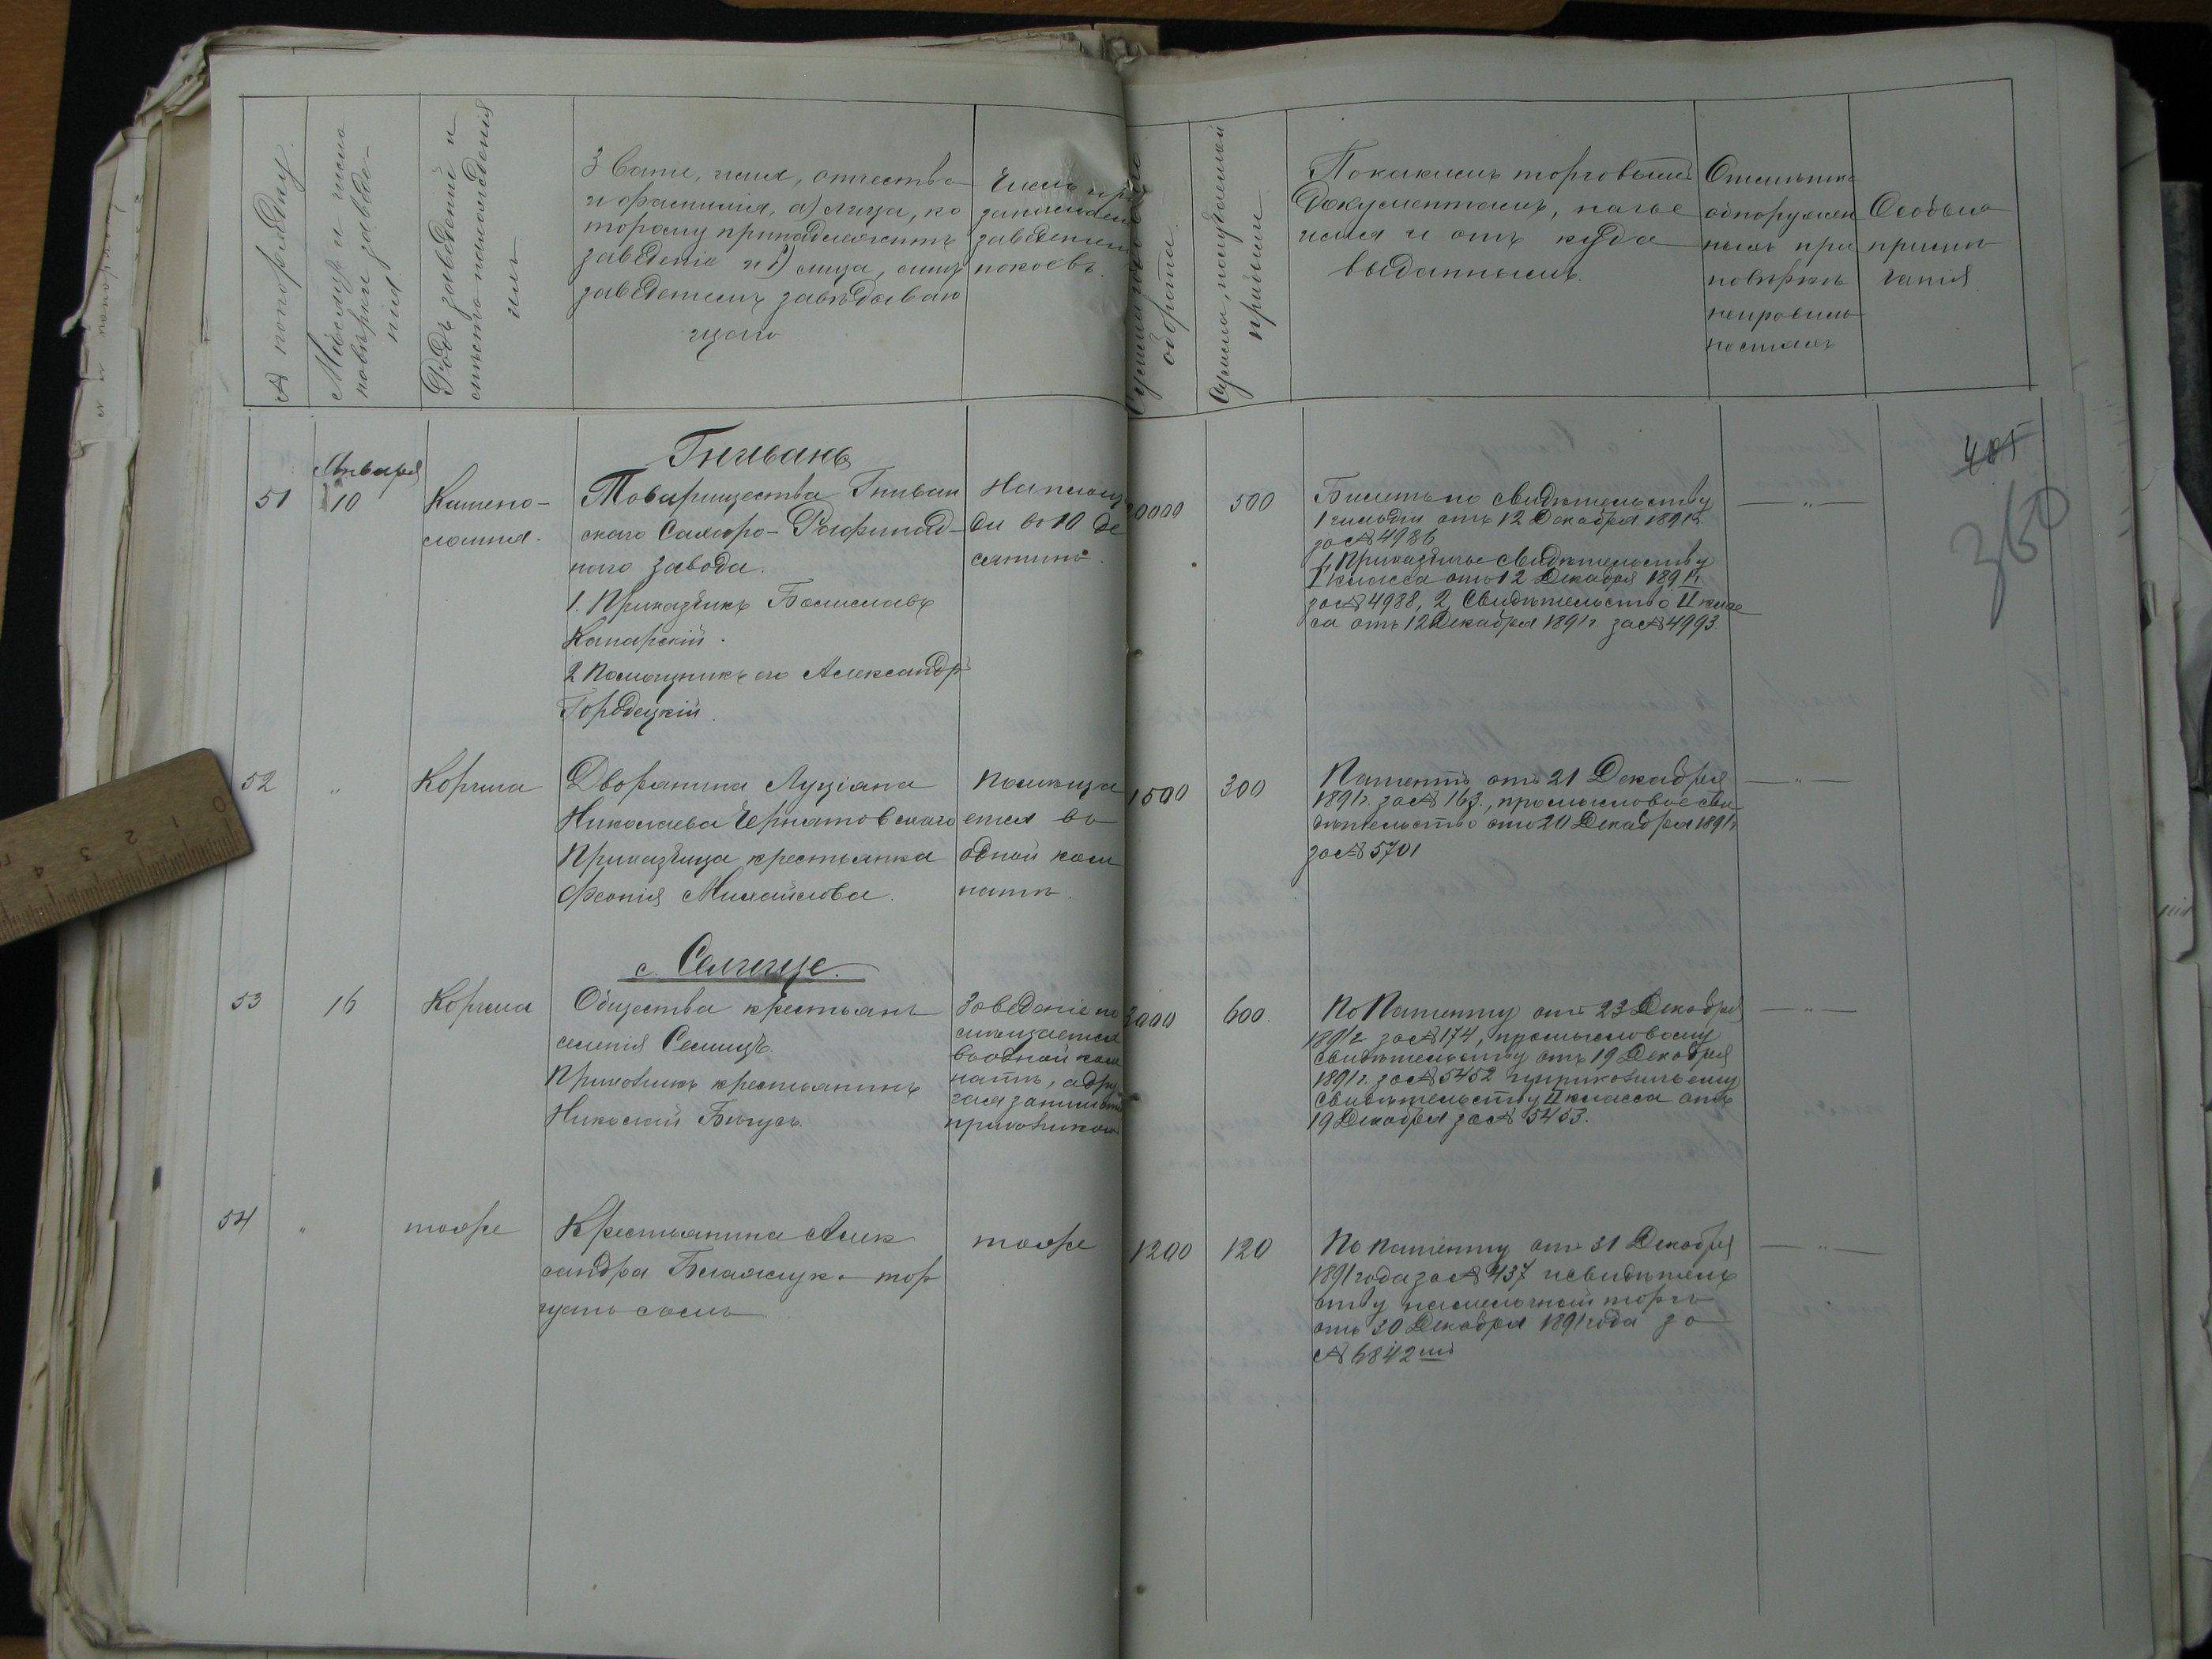 № по порядку.
Мѣсяцъ и число
повѣрки заведе-
нія
Родъ заведенія и
мѣсто нахожденія
Званіе, имя, отчество
и фамилія, а) лица, ко
торому принадлежитъ
заведеніе и б) лица, симъ
заведеніемъ завѣдываю
щаго
Число
заведеніемъ
покоевъ.
Сумма
оборота
Сумма, получаемой
прибыли
По какимъ торговымъ
документамъ, на чье
имя и отъ куда
выданнымъ.
обнаружен
ныхъ при
повѣркѣ
неправиль
ностяхъ
Особыя
примѣ
чанія
405
360
Гнивань
51
Января
10
Камено-
ломня.
Товарищества Гниван
скаго Сахаро-Рафинад-
наго завода.
1. Приказчикъ Болиславъ
Канарскій.
2 Помощникъ его Александръ
Городецкій.
На площа
ди въ 10 де
сятинъ.
0000
500
Билетъ по свидѣтельству
1 гильдіи отъ 12 Декабря 1891 г.
за № 4986
1, Приказчичье свидѣтельство
I класса отъ 12 Декабря 1891 г.
за № 4988, 2, Свидѣтельство II клас
са отъ 12 Декабря 1891 г. за № 4993
— „ —
52
„
Корчма
Дворянина Луціана
Николаева Чернятовскаго
Приказчица крестьянка
Феонія Михайлова.
Помѣща
ется въ
одной ком
натѣ.
1500
300
Патентъ отъ 21 Декабря
1891 г. за № 163., промысловое сви
дѣтельство отъ 20 Декабря 1891 г.
за № 5701
— „ —
с. Селище.
53
16
Корчма
Общества крестьянъ
селенія Селищъ.
Прикащикъ крестьянинъ
Николай
Заведеніе по
мѣщается
въ одной ком
натѣ, а дру
гая занимает
прикащикомъ
3000
600.
По Патенту отъ 23 Декабря
1891 г. за № 174, промысловому
свидѣтельству отъ 19 Декабря
1891 г. за № 5452 и прикащичьему
свидѣтельству II класса отъ
19 Декабря за № 5453.
— „ —
54
„
тоже
Крестьянина Алек
сандра Блажчука — тор
гуетъ самъ
тоже
1200
120
По патенту отъ 31 Декабря
1891 года за № 437 и свидѣтель
ству на мелочный торгъ
отъ 30 Декабря 1891 года за
№ 6842
— „ —
0 1 2 3 4